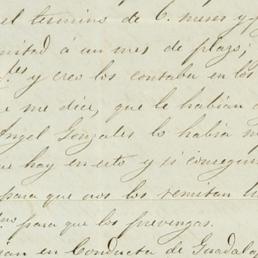 el termino de 6. meses y
mitad á un mes de plazo;
y creo los contaba en los
e me dice, que le habian
Angel Gonzales lo habia
ue hay en esto y si consegui
para que nos los remitan
para que los prevengas.
en Conducta de Guadala